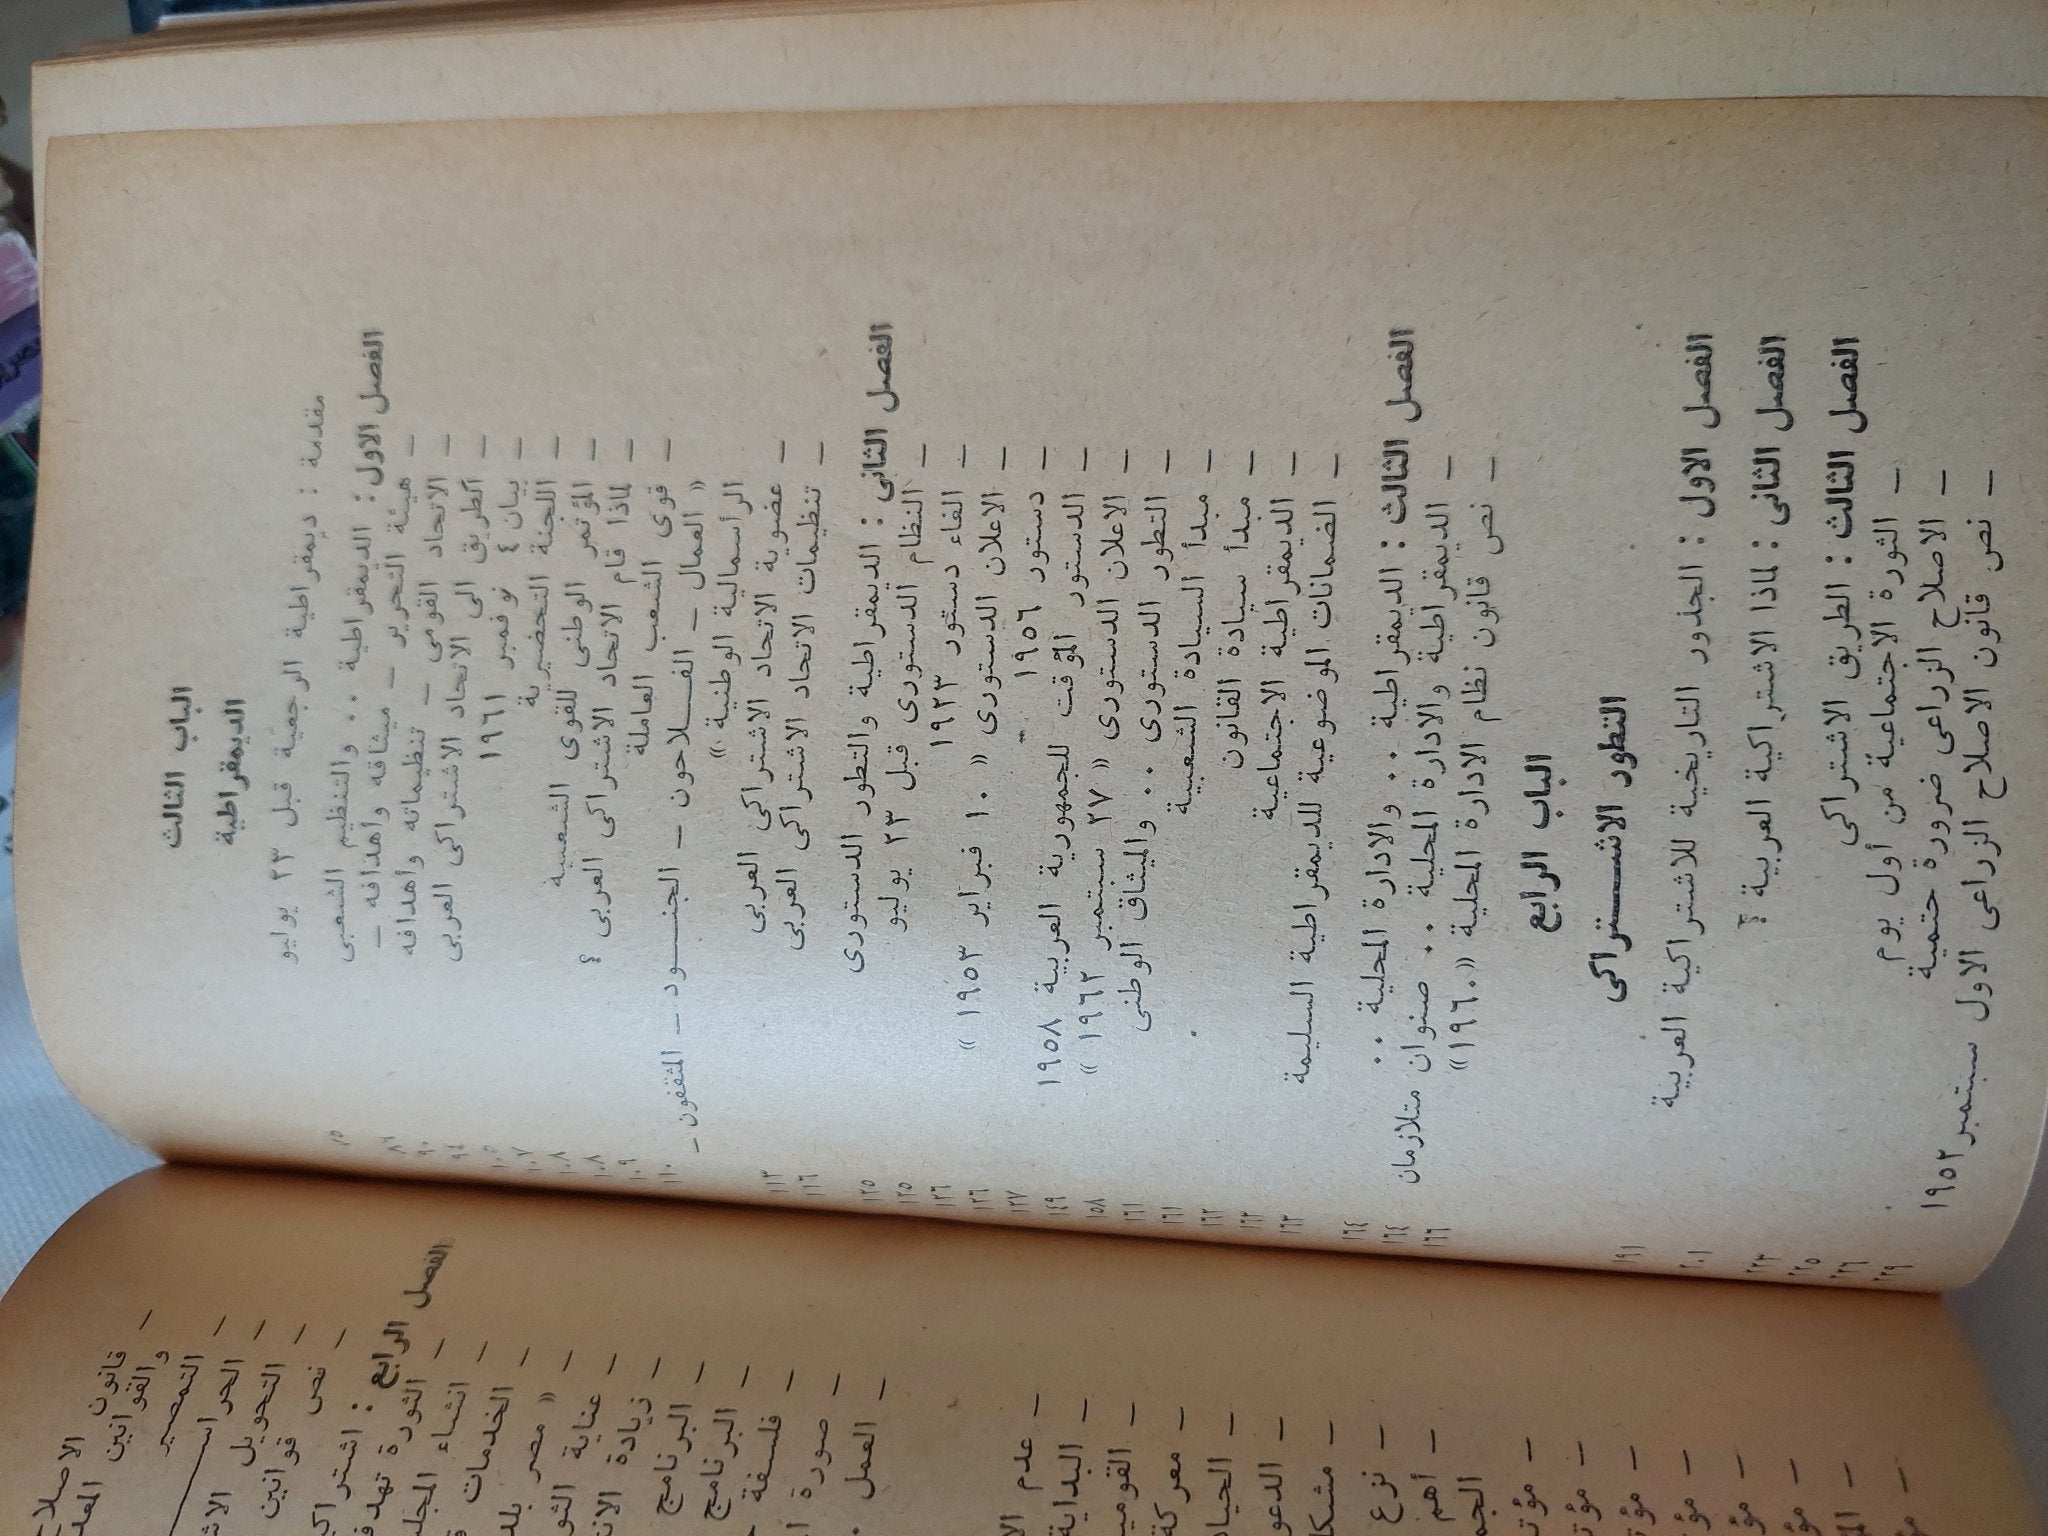 الباب الثالث
الديمقراطية
مقدمة : ديمقراطية الرجعية قبل ٢٣ يوليو
الفصل الاول : الديمقراطية ٠٠ والتنظيم الشعبى
— هيئة التحرير — ميثاقه وأهدافه — ٨٦
— الاتحاد القومى — تنظيماته وأهدافه ٩٠
— الطريق الى الاتحاد الاشتراكى العربى ٩٤
— بيان ٤ نوفمبر ١٩٦١ ١٠٥
— اللجنة التحضيرية ١٠٧
— المؤتمر الوطنى للقوى الشعبية ١٠٨
— لماذا قام الاتحاد الاشتراكى العربى ؟ ١٠٨
— قوى الشعب العاملة ١٠٩
« العمال — الفلاحون — الجنود — المثقفون — ١١٠
الرأسمالية الوطنية »
— عضوية الاتحاد الاشتراكى العربى ١١٣
— تنظيمات الاتحاد الاشتراكى العربى ١١٦
الفصل الثانى : الديمقراطية والتطور الدستورى ١٢٥
— النظام الدستورى قبل ٢٣ يوليو ١٢٥
— الغاء دستور ١٩٢٣ ١٢٦
— الاعلان الدستورى « ١٠ فبراير ١٩٥٣ » ١٢٦
— دستور ١٩٥٦ ١٢٧
— الدستور المؤقت للجمهورية العربية ١٩٥٨ ١٤٩
— الاعلان الدستورى « ٢٧ سبتمبر ١٩٦٢ » ١٥٨
— التطور الدستورى ٠٠ والميثاق الوطنى ١٦١
— مبدأ السيادة الشعبية ١٦١
— مبدأ سيادة القانون ١٦٢
— الديمقراطية الاجتماعية ١٦٣
— الضمانات الموضوعية للديمقراطية السليمة ١٦٣
الفصل الثالث : الديمقراطية ٠٠ والادارة المحلية ٠٠ ١٦٤
— الديمقراطية والادارة المحلية ٠٠ صنوان متلازمان ١٦٤
— نص قانون نظام الادارة المحلية «١٩٦٠» ١٦٦
الباب الرابع
التطور الاشتراكى
الفصل الاول : الجذور التاريخية للاشتراكية العربية ١٩١
الفصل الثانى : لماذا الاشتراكية العربية ؟ ٢٠١
الفصل الثالث : الطريق الاشتراكى ٢٢٣
— الثورة الاجتماعية من أول يوم ٢٢٥
— الاصلاح الزراعى ضرورة حتمية ٢٢٦
— نص قانون الاصلاح الزراعى الاول سبتمبر ١٩٥٢ ٢٢٩
— قانون الاصلا
والقوانين المعد
— التمصير
— الحراس
— التحويل الاش
— نص قوانين
الفصل الرابع : اشتراك
— الثورة تهد
— انشاء المجل
— الخدمات
« مصر بلد
— عناية الثو
— زيادة الان
— البرنامج
— البرنامج
— فلسفة
— صورة
— العمل
— عدم الا
— البداية
— القومي
— معركة
— الحيا
— الدعو
— مشكا
— نزع
— أهم
الجم
— مؤت
— مؤت
— مؤت
— مؤت
— مؤ
— مؤ